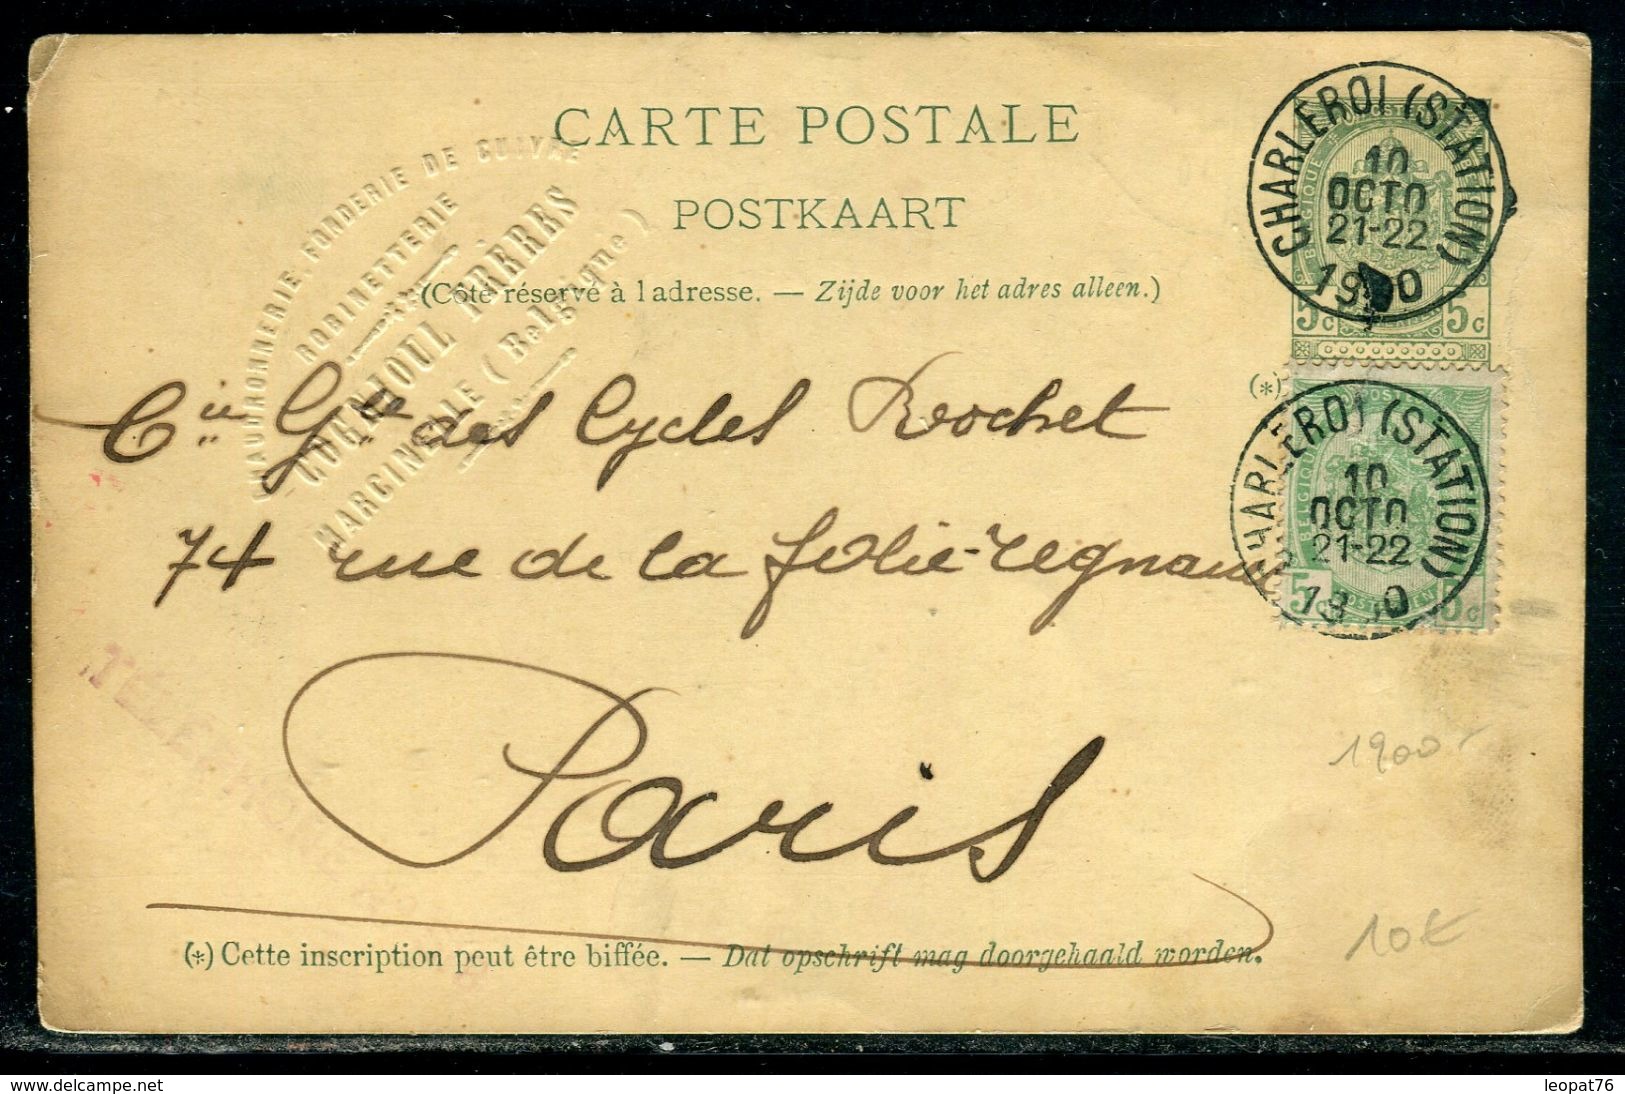 CARTE POSTALE
POSTKAART
(Côté réservé à l'adresse. — Zijde voor het adres alleen.)
CHAUDRONNERIE, FONDERIE DE CUIVRE
ROBINETTERIE
COUGNIOUL FRÈRES
MARCINELLE (Belgique)
CHARLEROI (STATION)
10
OCTO
21-22
1900
BELGIQUE
5c 5c
(*)
CHARLEROI (STATION)
10
OCTO
21-22
5c 5c
Cie Gle des Cycles Rochet
74 rue de la folie-regnault
Paris
TÉLÉPHONE
1900
10€
(*) Cette inscription peut être biffée. — Dat opschrift mag doorgehaald worden.
leopat76